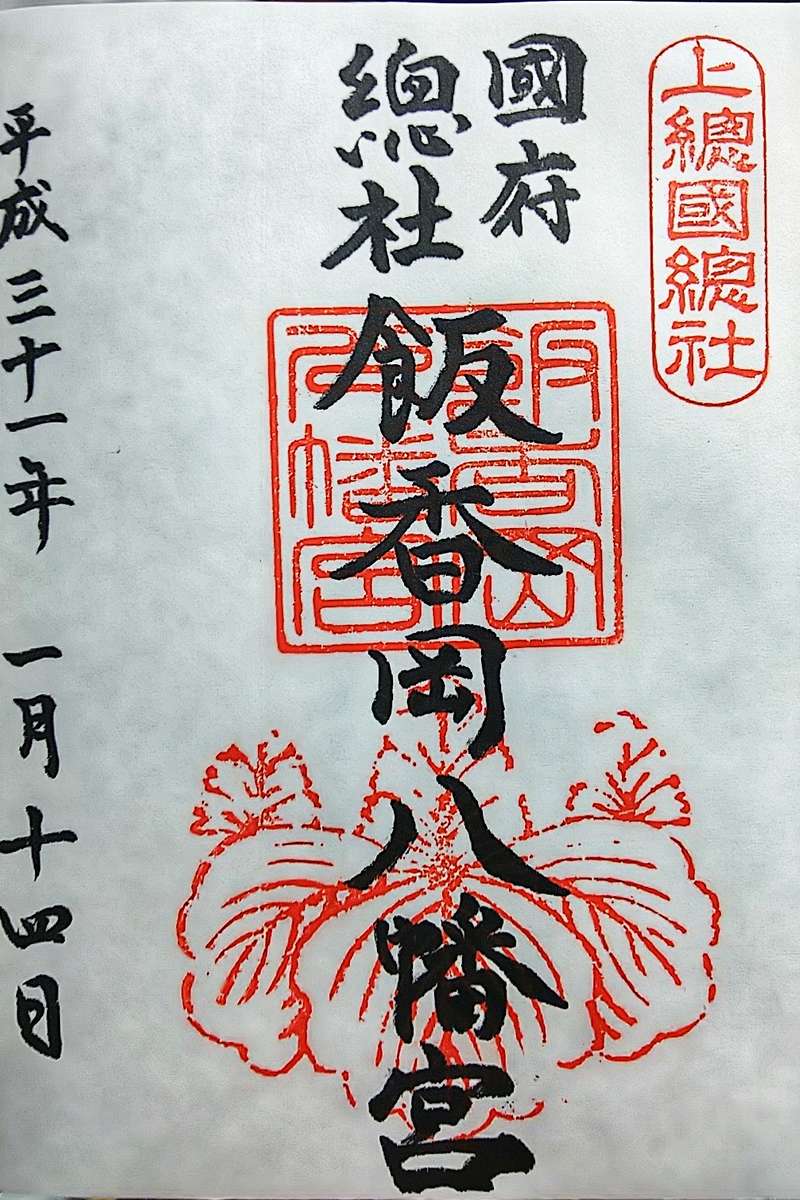 上總國總社
國府
總社
飯香岡八幡宮
飯香岡
八幡宮
平成三十一年 一月十四日